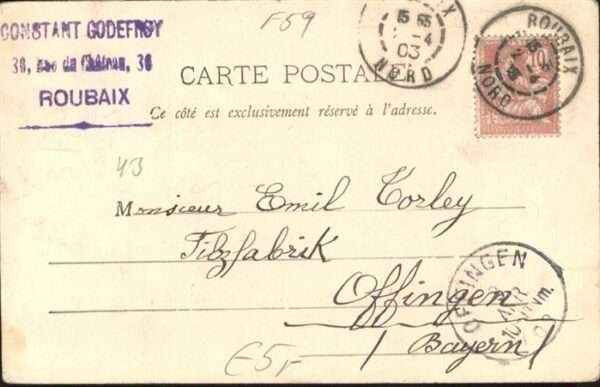 CONSTANT GODEFROY
38, rue du Château, 38
ROUBAIX
F59
ROUBAIX
15 55
-4
03
NORD
ROUBAIX
NORD
10
CARTE POSTALE
Ce côté est exclusivement réservé à l'adresse.
43
Monsieur Emil Torley
Filzfabrik
Offingen
(Bayern)
OFFINGEN
APR
Vm.
03
€5,-